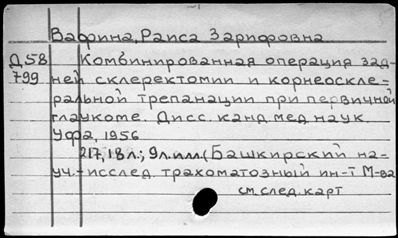 Вафина, Раиса Зарифовна
Д58 Комбинированная операция зад-
799 ней склерэктомии и корнеоскле-
ральной трепанации при первичной
глаукоме. Дисс. канд. мед. наук.
Уфа, 1956
217, 18 л.; 9 л. илл. (Башкирский на-
уч.-исслед. трахоматозный ин-т М-ва
см. след. карт